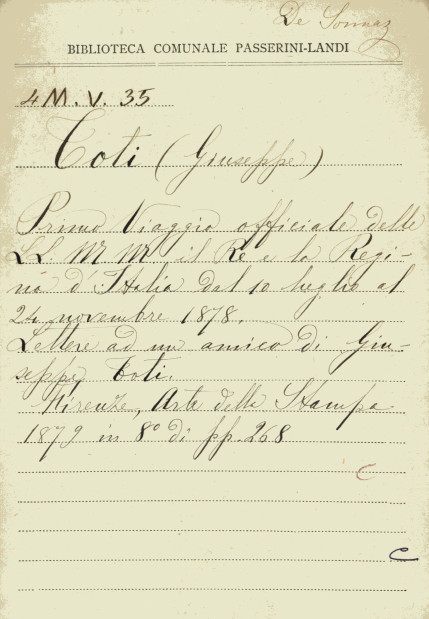 De Sonnaz
BIBLIOTECA COMUNALE PASSERINI-LANDI
4 M. V. 35
Toti (Giuseppe)
Primo Viaggio officiale delle
LL. MM. il Re e la Regi-
na d'Italia dal 10 luglio al
24 novembre 1878.
Lettere ad un amico di Giu-
seppe Toti.
Firenze, Arte della Stampa
1879 in 8° di pp. 268
C
C